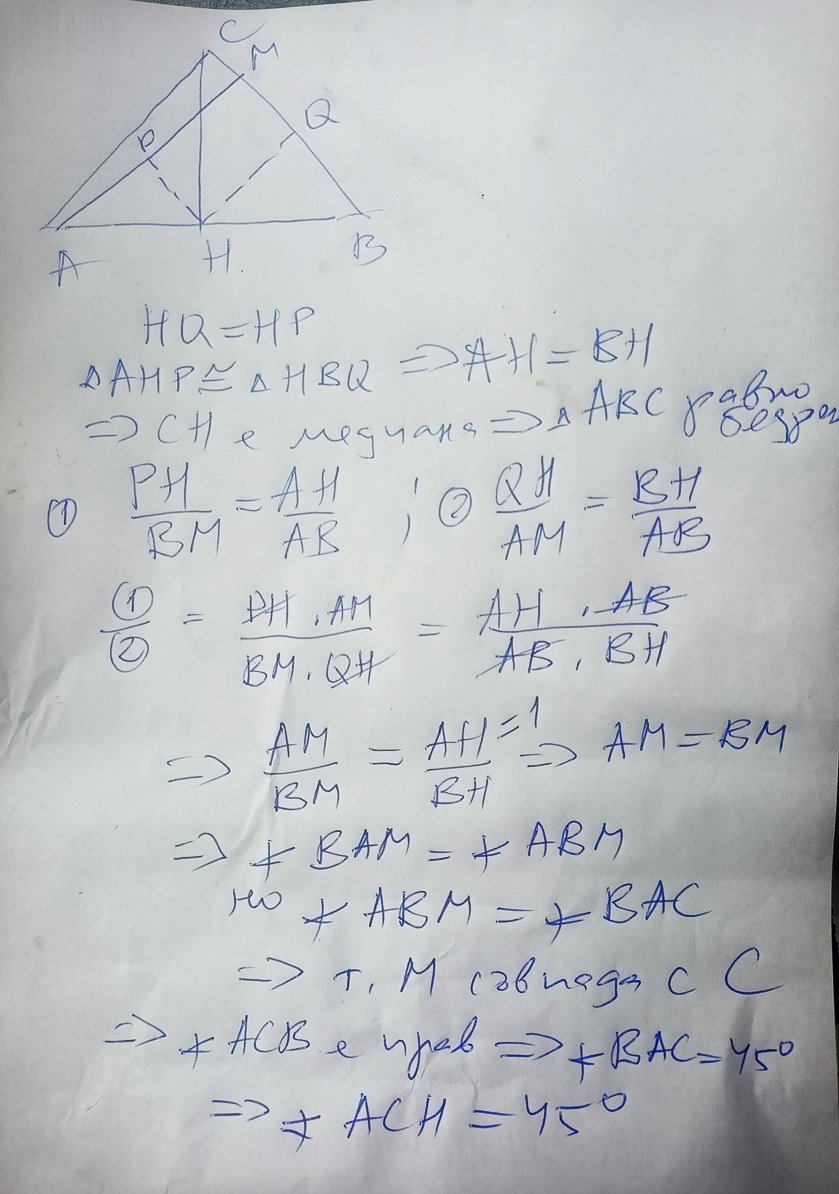 C
M
P
Q
A
H.
B
HQ=HP
△AHP≅△HBQ ⇒ AH=BH
⇒ CH е медиана ⇒ △ABC равно
бедрен
① PH/BM = AH/AB ; ② QH/AM = BH/AB
①/② = PH.AM/BM.QH = AH.AB/AB.BH
⇒ AM/BM = AH/BH =1 ⇒ AM=BM
⇒ ∢ BAM = ∢ ABM
но ∢ ABM = ∢ BAC
⇒ т. M съвпада с C
⇒ ∢ ACB е прав ⇒ ∢ BAC=45°
⇒ ∢ ACH = 45°